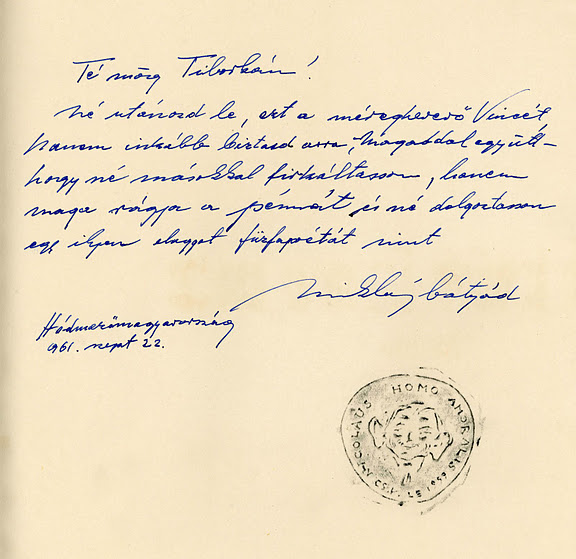 Té mözg Tiborkám!
Né utánozd le, ezt a méregkeverő Vincét,
hanem inkább bíztasd arra, Magaddal együtt –
hogy né másokkal firkáltasson, hanem
maga rágja a pénnát, és né dolgoztasson
egy ilyen elaggot fűzfapétát mint
Miklós bátyád
Hódmezőmagyarország
961. szept 22.
HOMO AMORALIS